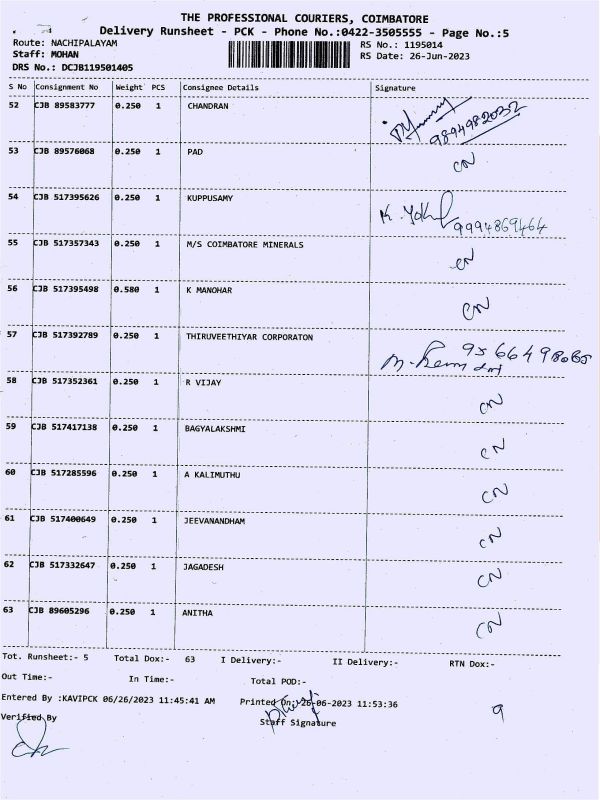 THE PROFESSIONAL COURIERS, COIMBATORE
Delivery Runsheet - PCK - Phone No.:0422-3505555 - Page No.:5
Route: NACHIPALAYAM RS No.: 1195014
Staff: MOHAN RS Date: 26-Jun-2023
DRS No.: DCJB119501405
S No Consignment No Weight PCS Consignee Details Signature
52 CJB 89583777 0.250 1 CHANDRAN
9894982032
53 CJB 89576068 0.250 1 PAD CN
54 CJB 517395626 0.250 1 KUPPUSAMY K. 9994869464
55 CJB 517357343 0.250 1 M/S COIMBATORE MINERALS CN
56 CJB 517395498 0.580 1 K MANOHAR CN
57 CJB 517392789 0.250 1 THIRUVEETHIYAR CORPORATON
58 CJB 517352361 0.250 1 R VIJAY CN
59 CJB 517417138 0.250 1 BAGYALAKSHMI CN
60 CJB 517285596 0.250 1 A KALIMUTHU CN
61 CJB 517400649 0.250 1 JEEVANANDHAM CN
62 CJB 517332647 0.250 1 JAGADESH CN
63 CJB 89605296 0.250 1 ANITHA CN
Tot. Runsheet:- 5 Total Dox:- 63 I Delivery:- II Delivery:- RTN Dox:-
Out Time:- In Time:- Total POD:-
Entered By :KAVIPCK 06/26/2023 11:45:41 AM Printed On: 26-06-2023 11:53:36
Verified By Staff Signature 9